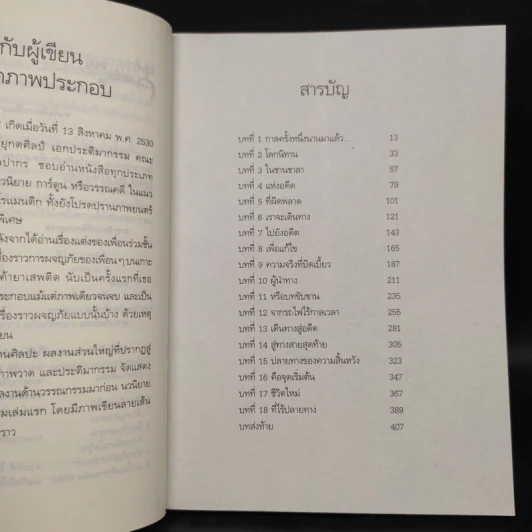 กับผู้เขียน
ภาพประกอบ
เกิดเมื่อวันที่ 13 สิงหาคม พ.ศ. 2530
ยุกตศิลป์ เอกประติมากรรม คณะ
ปากร ชอบอ่านหนังสือทุกประเภท
วนิยาย การ์ตูน หรือวรรณคดี ในแนว
รแมนติก ทั้งยังโปรดปรานภาพยนตร์
พิเศษ
ลังจากได้อ่านเรื่องแต่งของเพื่อนร่วมชั้น
รื่องราวการผจญภัยของเพื่อนๆ บนเกาะ
ค้ายาเสพติด นับเป็นครั้งแรกที่เธอ
ระกอบแม้แต่ภาพเดียวจนจบ และเป็น
รื่องราวผจญภัยแบบนั้นบ้าง ด้วยเหตุ
ยน
านศิลปะ ผลงานส่วนใหญ่ที่ปรากฏอยู่
าพวาด และประติมากรรม จัดแสดง
ลงานด้านวรรณกรรมมาก่อน นวนิยาย
มเล่มแรก โดยมีภาพเขียนลายเส้น
ราว
สารบัญ
บทที่ 1 กาลครั้งหนึ่งนานมาแล้ว... 13
บทที่ 2 โลกนิทาน 33
บทที่ 3 ในชานชาลา 57
บทที่ 4 แห่งอดีต 79
บทที่ 5 ที่ผิดพลาด 101
บทที่ 6 เราจะเดินทาง 121
บทที่ 7 ไปยังอดีต 143
บทที่ 8 เพื่อแก้ไข 165
บทที่ 9 ความจริงที่บิดเบี้ยว 187
บทที่ 10 ผู้นำทาง 211
บทที่ 11 หรือบทขับขาน 235
บทที่ 12 จากรถไฟไร้กาลเวลา 255
บทที่ 13 เดินทางสู่อดีต 281
บทที่ 14 สู่ทางสายสุดท้าย 305
บทที่ 15 ปลายทางของความสิ้นหวัง 323
บทที่ 16 คือจุดเริ่มต้น 347
บทที่ 17 ชีวิตใหม่ 367
บทที่ 18 ที่ไร้ปลายทาง 389
บทส่งท้าย 407